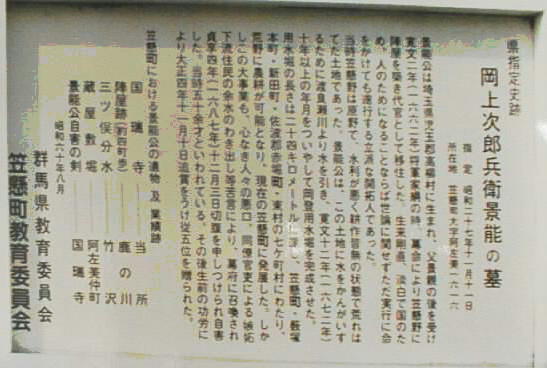 県指定史跡
岡上次郎兵衛景能の墓
指定 昭和二十七年十一月十一日
所在地 笠懸町大字阿左美一六一六
景能公は埼玉県児玉郡高柳村に生まれ、父景親の後を受け
寛文二年(一六六二年)将軍家綱の時、幕命により笠懸野に
陣屋を築き代官として移住した。生来剛直、淡白で国のた
め、人のためになることならば世論に関せずただ実行に命
をかけても遂行する立派な開拓人であった。
当時笠懸野は原野て、水利が悪く耕作皆無の状態で荒れは
てた土地であった。景能公は、この土地に水をかんがいす
るために渡良瀬川より水を引き、寛文十二年(一六七二年)
十年以上の年月をついやして岡登用水堀を完成させた。
用水堀の長さは二十四キロメートルに達し、笠懸町・薮塚
本町・新田町・佐波郡赤堀町・東村の七ケ町村にわたり、
荒野に農耕が可能となり、現在の笠懸町に発展した。しか
しこの大事業も、心なき人々の悪口、同僚官吏による嫉妬
下流住民の余水のわき出し等苦言により、幕府に召喚され
貞享四年(一六八七年)十二月三日切腹を申しつけられ自害
した。当時五十余才といわれている。その後生前の功労に
より大正四年十一月十日追賞をうけ従五位を贈られた。
笠懸町における景能公の遺物 及 業績跡
国瑞寺 当所
陣屋跡(約四町歩) 鹿の川
三ツ俣分水 竹沢
蔵屋敷堀 阿左美仲町
景能公自害の剣 国瑞寺
昭和六十年八月
群馬県教育委員会
笠懸町教育委員会